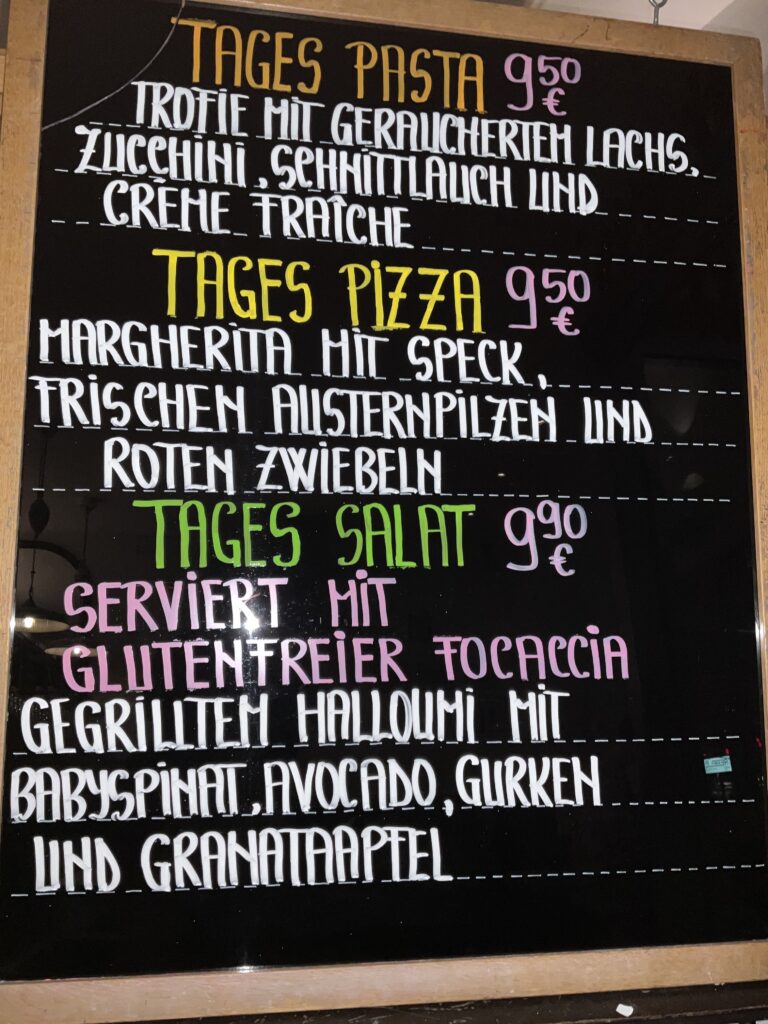 TAGES PASTA 950 €
TROFIE MIT GERAUCHERTEM LACHS,
ZUCCHINI, SCHNITTLAUCH UND
CRÉME FRAÎCHE
TAGES PIZZA 950 €
MARGHERITA MIT SPECK,
FRISCHEN AUSTERNPILZEN UND
ROTEN ZWIEBELN
TAGES SALAT 990 €
SERVIERT MIT
GLUTENFREIER FOCACCIA
GEGRILLTEM HALLOUMI MIT
BABYSPINAT, AVOCADO, GURKEN
UND GRANATAAPFEL